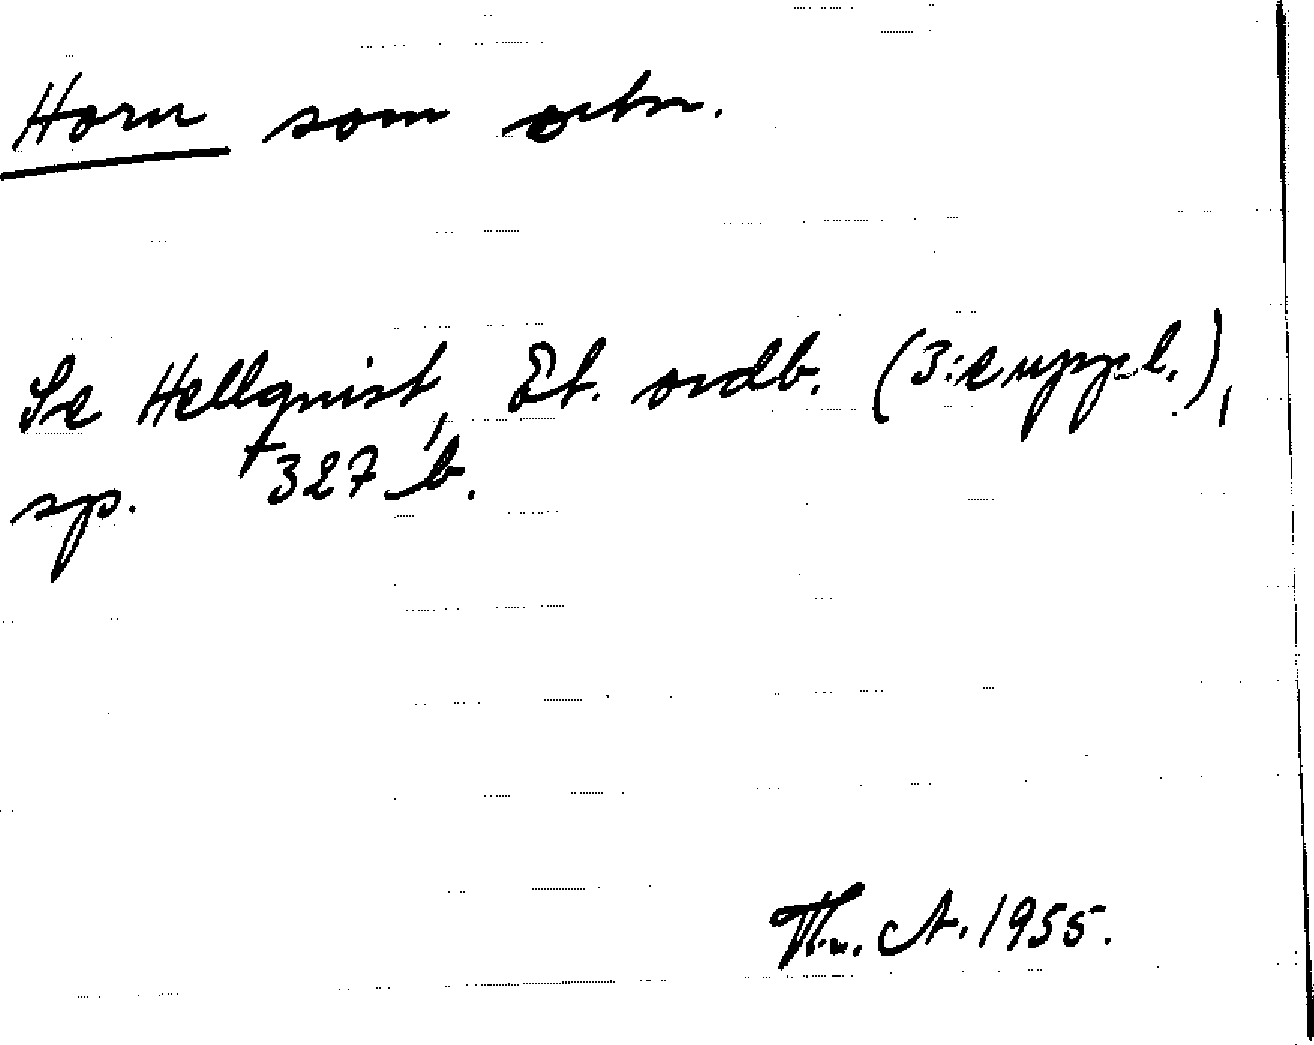 Horn som ortn.
Se Hellquist, Et. ordb. (3:e uppl.),
sp. 327 b.
Th. A. 1955.